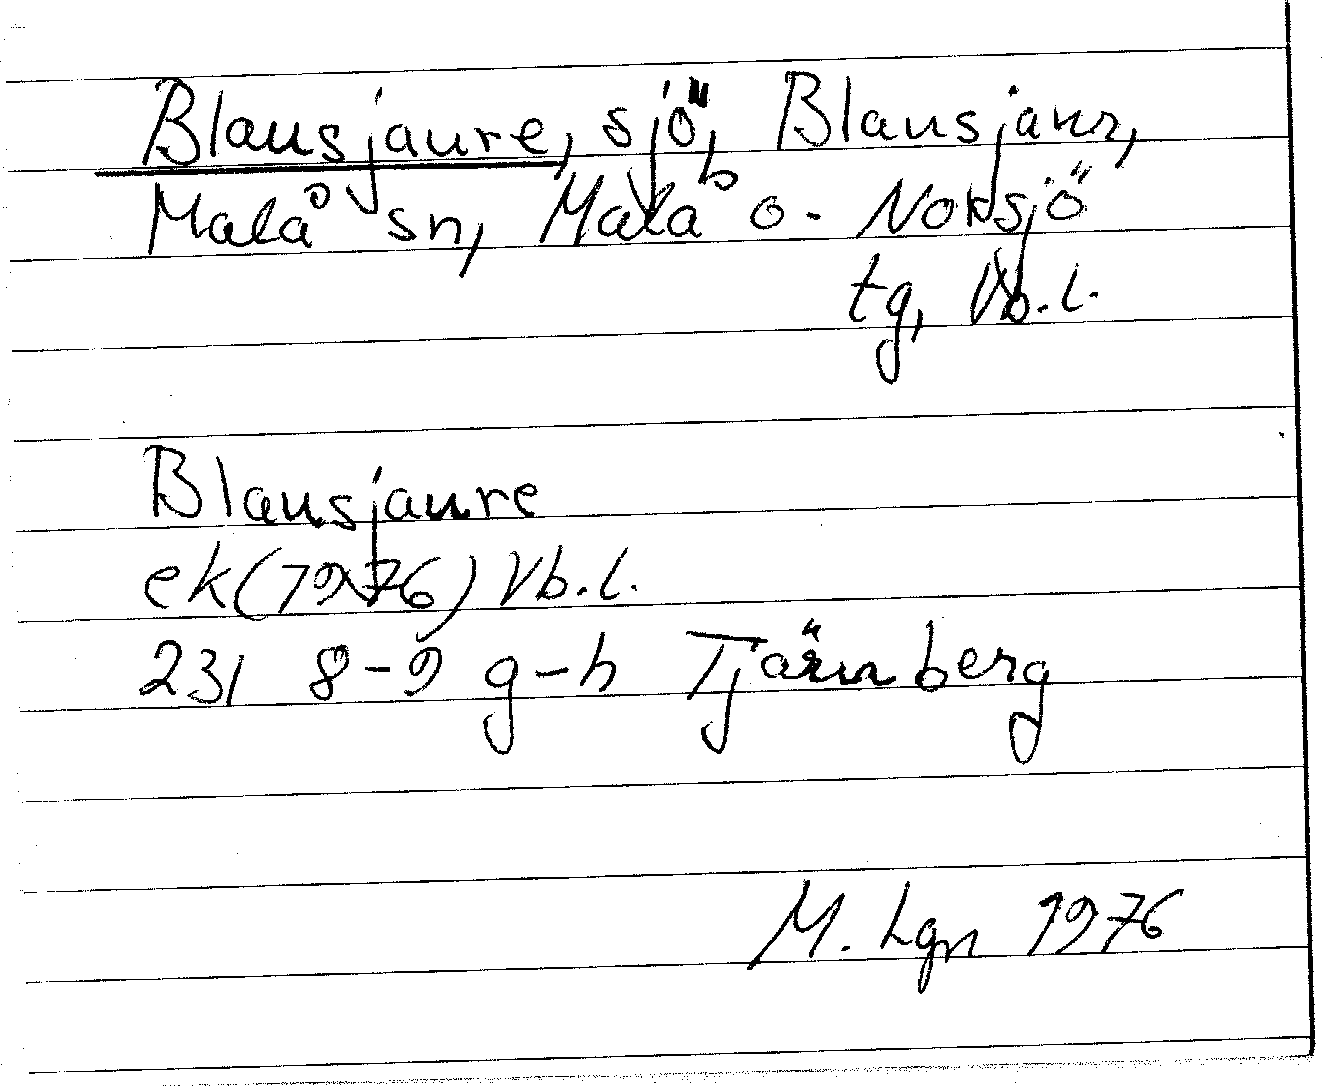 Blausjaure, sjö, Blausjaur,
Malå sn, Malå o. Norsjö
tg, Vb.l.
Blausjaure
ek(1976) Vb.l.
23I 8-9 g-h Tjärnberg
M. Lgn 1976